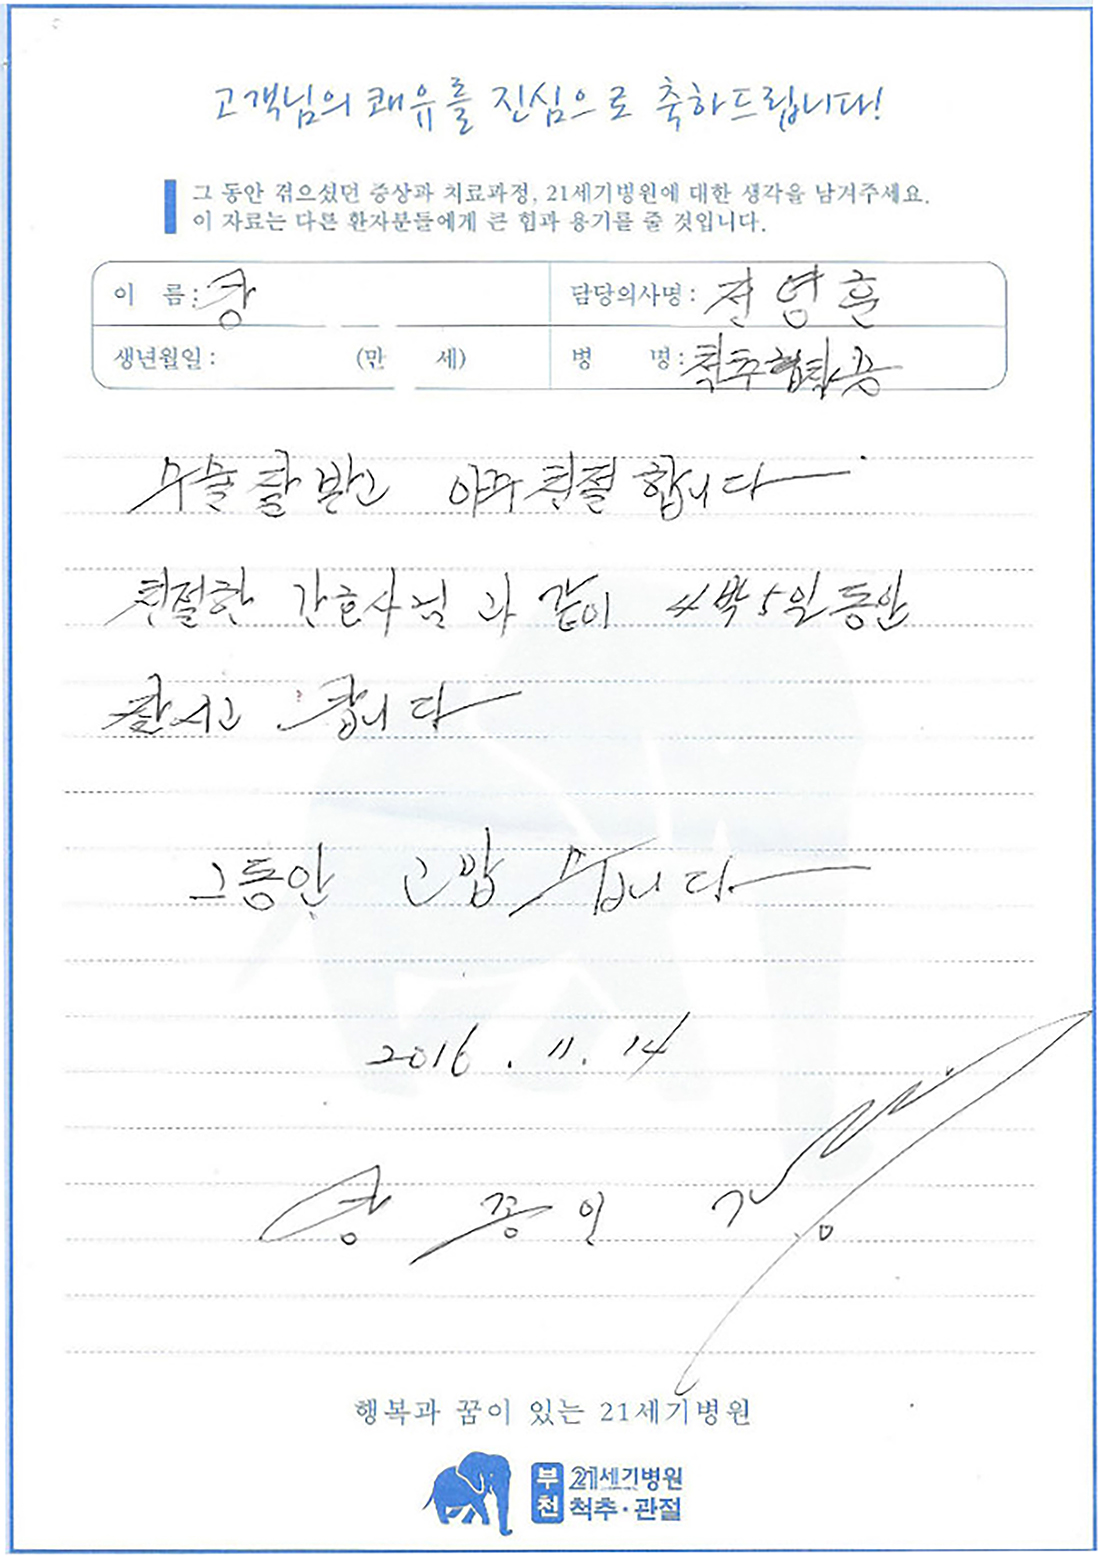 고객님의 쾌유를 진심으로 축하드립니다!
그 동안 겪으셨던 증상과 치료과정, 21세기병원에 대한 생각을 남겨주세요.
이 자료는 다른 환자분들에게 큰 힘과 용기를 줄 것입니다.
이 름 : 황 담당의사명 : 전영훈
생년월일 : (만 세) 병 명 : 척추협착증
수술 잘 받고 아주 친절 합니다
친절한 간호사님 과 같이 4박 5일 동안
잘 쉬고 갑니다
그동안 고맙습니다
2016. 11. 14
황 종 인
행복과 꿈이 있는 21세기병원
부천 21세기병원
척추·관절